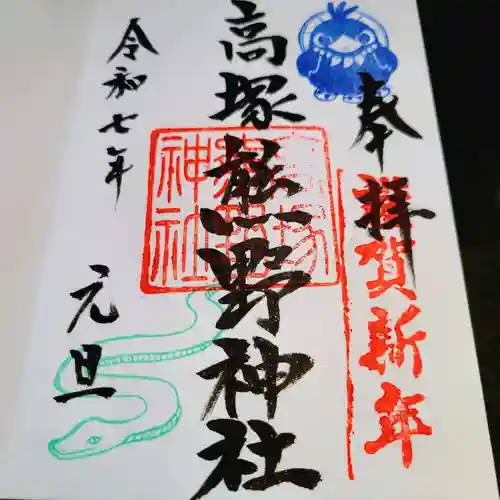 奉拝
賀新年
高塚熊野神社
高塚熊野神社
令和七年
元旦